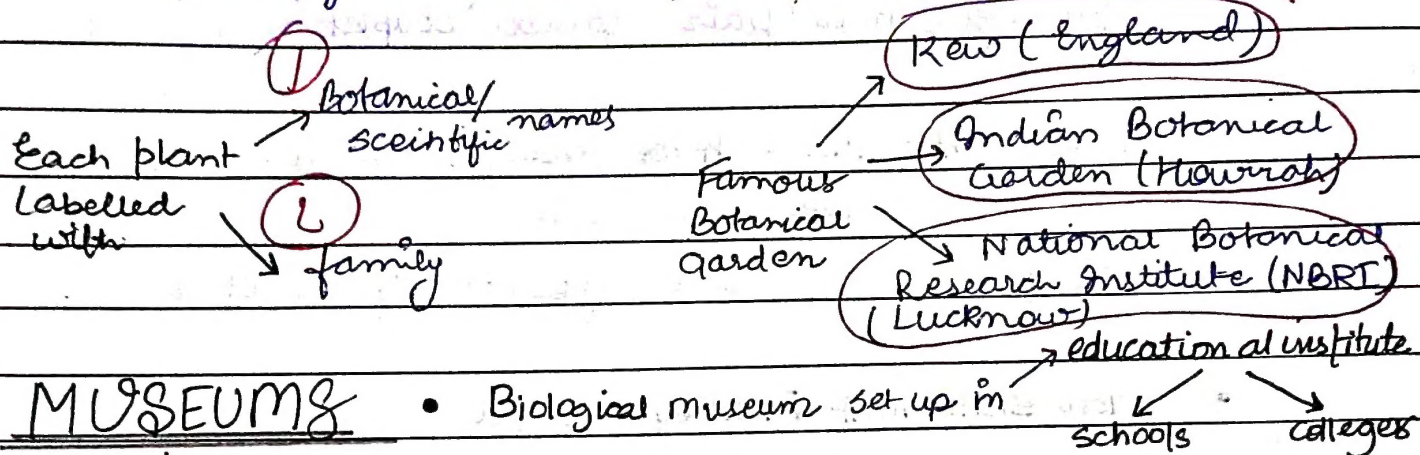 ① Botanical/
sceintific names
Each plant
Labelled
with
② family
Famous
Botanical
garden
Kew (England)
Indian Botanical
Garden (Howrah)
National Botanical
Research Institute (NBRI)
(Lucknow)
MUSEUMS • Biological museum set up in
educational institute
schools colleges